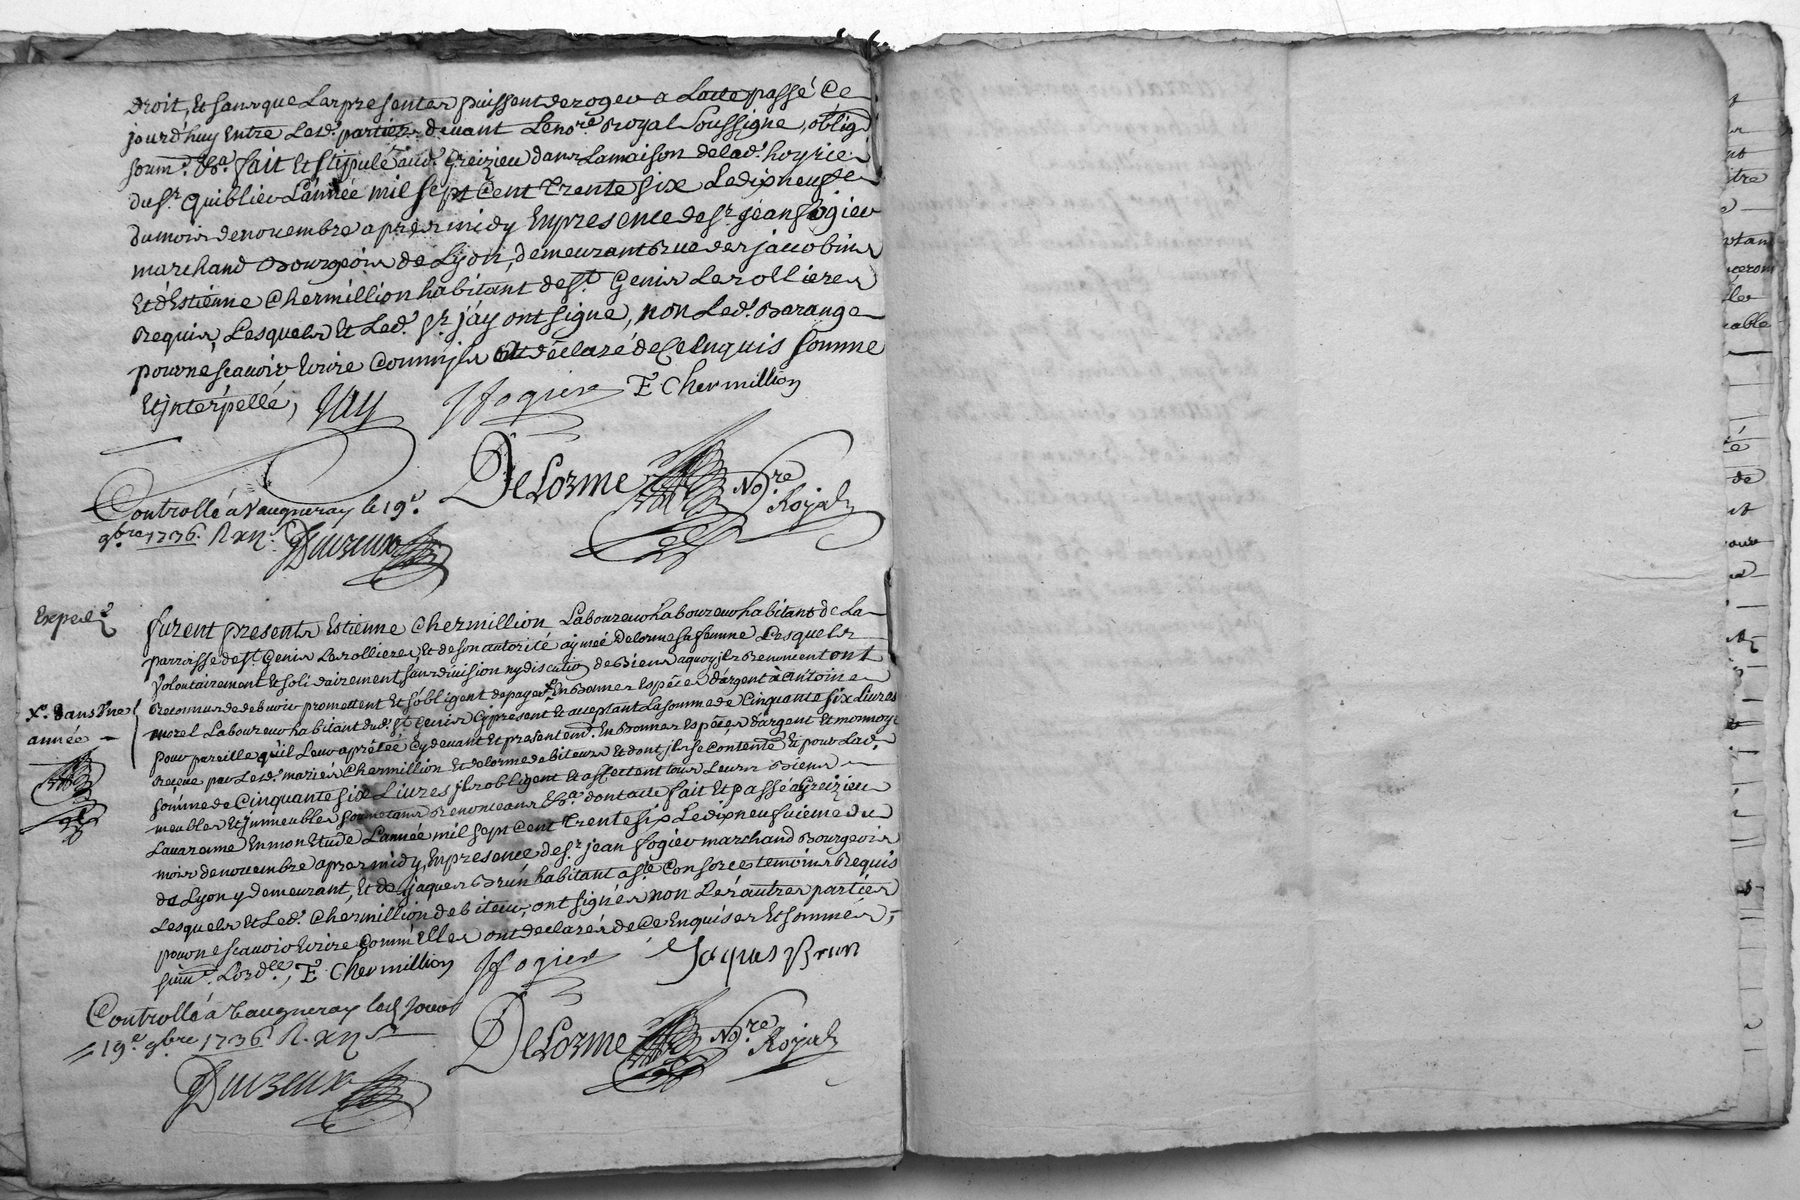 droit, Et sans que Les presentes puissent deroger a Lacte passé Ce
jourd'huy Entre Lesd. parties devant Le nore Royal Soussigne, oblig
soum. &a. fait Et stipulé aud. Greizieu dans La maison de lad. hoyrie
du sr. Quiblier L'année mil sept Cent trente six Le dix neufe
du mois de novembre apres midy En presence de sr. jean fogier
marchand Bourgeois de Lyon, demeurant Rue des jacobins
Et d'Estienne Chermillion habitant de st. Genis Les ollieres
Requis, Lesquels Et Led. sr. jay ont signe, non Led. Barange
pour ne scavoir Ecrire Comm'il a déclaré de Ce Enquis somme
Et jnterpellé, JAy JFogier E Chermillion
DeLorme Nore Royal
Controllé á Vaugneray le 19e.
9bre 1736. R xij s
Duizeux
Exped
furent presents Estienne Chermillion Laboureur habitant de La
parroisse de st. Genis Les ollieres Et de son autorité aymeé delorme sa femme Lesquels
Volontairement Et solidairement sans division ny discution de Biens a quoy ils Renoncent ont
Reconnus de debvoir promettent Et s'obligent de payer x. En Bonnes Especes d'argent à antoine
morel Laboureur habitant dud. st Genis Cy present Et acceptant La somme de Cinquante six Livres
x. dans Une
année
pour pareille qu'il Leur a prêtée Cy devant Et presentemt. En Bonnes Especes d'argent Et monnoye
Reçeue par Lesd. mariés Chermillion Et delorme debiteurs Et dont ils se Contente Et pour Lad.
somme de Cinquante six Livres ils obligent Et affectent tous Leurs Biens
meubles Et jmmeubles soumetans Renonceans &a. dont acte fait Et passé a Greizieu
Lavarenne En mon Etude L'année mil sept Cent trente six Le dix neufvieme du
mois de novembre apres midy, En presence de sr. jean fogier marchand Bourgeois
de Lyon y demeurant, Et de jaques Brun habitant a ste Consorce temoins Requis
Lesquels Et Led. Chermillion debiteur, ont signés non Les autres parties
pour ne scavoir Ecrire Comm'Elles ont declarés de Ce Enquises Et sommés,
E Chermillion JFogier Jaques Brun
DeLorme Nore Royal
Controllé á Vaugneray led jour
19e 9bre 1736 R. xij s
Duizeux